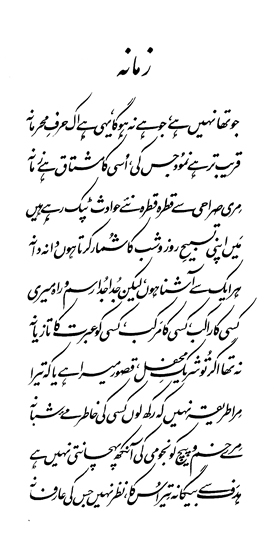 زمانہ
جو تھا نہیں ہے، جو ہے نہ ہوگا، یہی ہے اک حرفِ محرمانہ
قریب تر ہے نمُود جس کی، اُسی کا مشتاق ہے زمانہ
مِری صراحی سے قطرہ قطرہ نئے حوادث ٹپک رہے ہیں
مَیں اپنی تسبیحِ روز و شب کا شُمار کرتا ہوں دانہ دانہ
ہر ایک سے آشنا ہوں لیکن جُدا جُدا رسم و راہ میری
کسی کا راکب، کسی کا مَرکب، کسی کو عبرت کا تازیانہ
نہ تھا اگر تُو شریکِ محفل، قصور میرا ہے یا کہ تیرا
مِرا طریقہ نہیں کہ رکھ لوں کسی کی خاطر مئے شبانہ
مِرے خم و پیچ کو نجومی کی آنکھ پہچانتی نہیں ہے
ہدَف سے بیگانہ تیر اُس کا، نظر نہیں جس کی عارفانہ